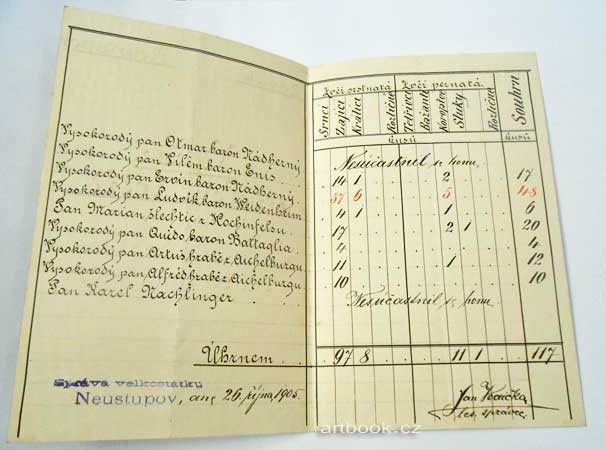 Zvěř srstnatá Zvěř pernatá
Srnci Zajíci Králíci Rozličné Tetřevi Bažanti Koroptve Sluky Rozličné Souhrn
kusů kusů
Vysokorodý pan Otmar baron Nádherný Nesúčastnil se honu.
Vysokorodý pan Vilém baron Enis 14 1 2 17
Vysokorodý pan Ervín baron Nádherný 37 6 5 48
Vysokorodý pan Ludvík baron Weidenheim 4 1 1 6
Pan Marian šlechtic z Hochinfelsu 17 2 1 20
Vysokorodý pan Quido baron Battaglia 4 4
Vysokorodý pan Artuš hrabě z Aichelburgu 11 1 12
Vysokorodý pan Alfréd hrabě z Aichelburgu 10 10
Pan Karel Nachlinger Nesúčastnil se honu.
Úhrnem 97 8 11 1 117
Správa velkostatku
Neustupov, dne 26. října 1905.
Jan
les. správce
artbook.cz